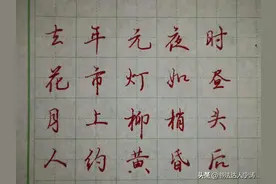 去年元夜时
花市灯如昼
月上柳梢头
人约黄昏后